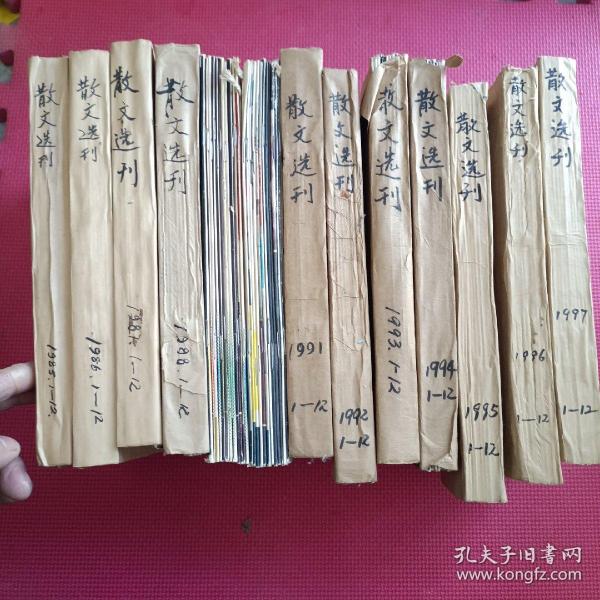 散文选刊
1985.1—12.
散文选刊
1986.1—12
散文选刊
1987.1—12
散文选刊
1988.1—12
散文选刊
1991
1—12
散文选刊
1992
1—12
散文选刊
1993.1—12
散文选刊
1994
1—12
散文选刊
1995
1—12
散文选刊
1996
1—12
散文选刊
1997
1—12
孔夫子旧书网
www.kongfz.com